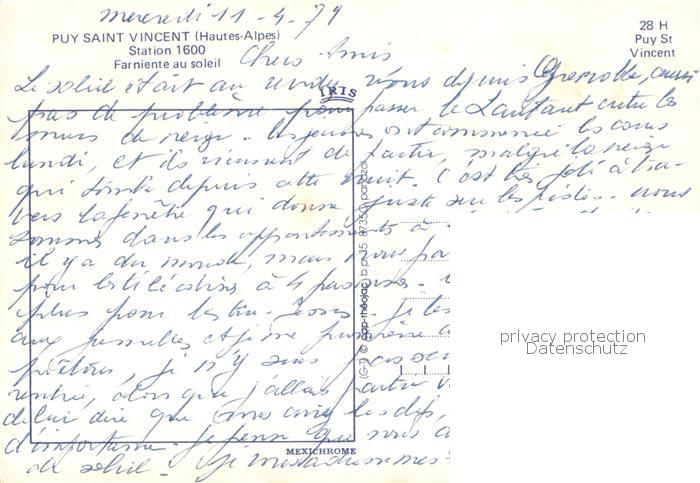 mercredi 11-4-79
PUY SAINT VINCENT (Hautes-Alpes)
Station 1600
Farniente au soleil
28 H
Puy St
Vincent
Chers Amis
Le soleil était au rendez vous depuis Grenoble, aussi
pas de problème pour passer le Lautaret entre les
murs de neige. les jeunes ont commencé les cours
lundi, et ils viennent de partir, malgré la neige
qui tombe depuis cette nuit. C'est très joli à tra-
vers la fenêtre qui donne juste sur les pistes. nous
sommes dans les appartements à
il y a du monde, mais nous pa
pour les télécabines à 4 personnes.
plus pour les
aux jumelles et je me
je n'y suis pas
rentrée, alors que j'allais partir
dire que vous avez les clefs,
d'importance. Je pense que vous a
du soleil. Je vous adresse mes
IRIS
MEXICHROME
(G.J) © cap-théojac b.p. 15 87350 panazol
privacy protection
Datenschutz